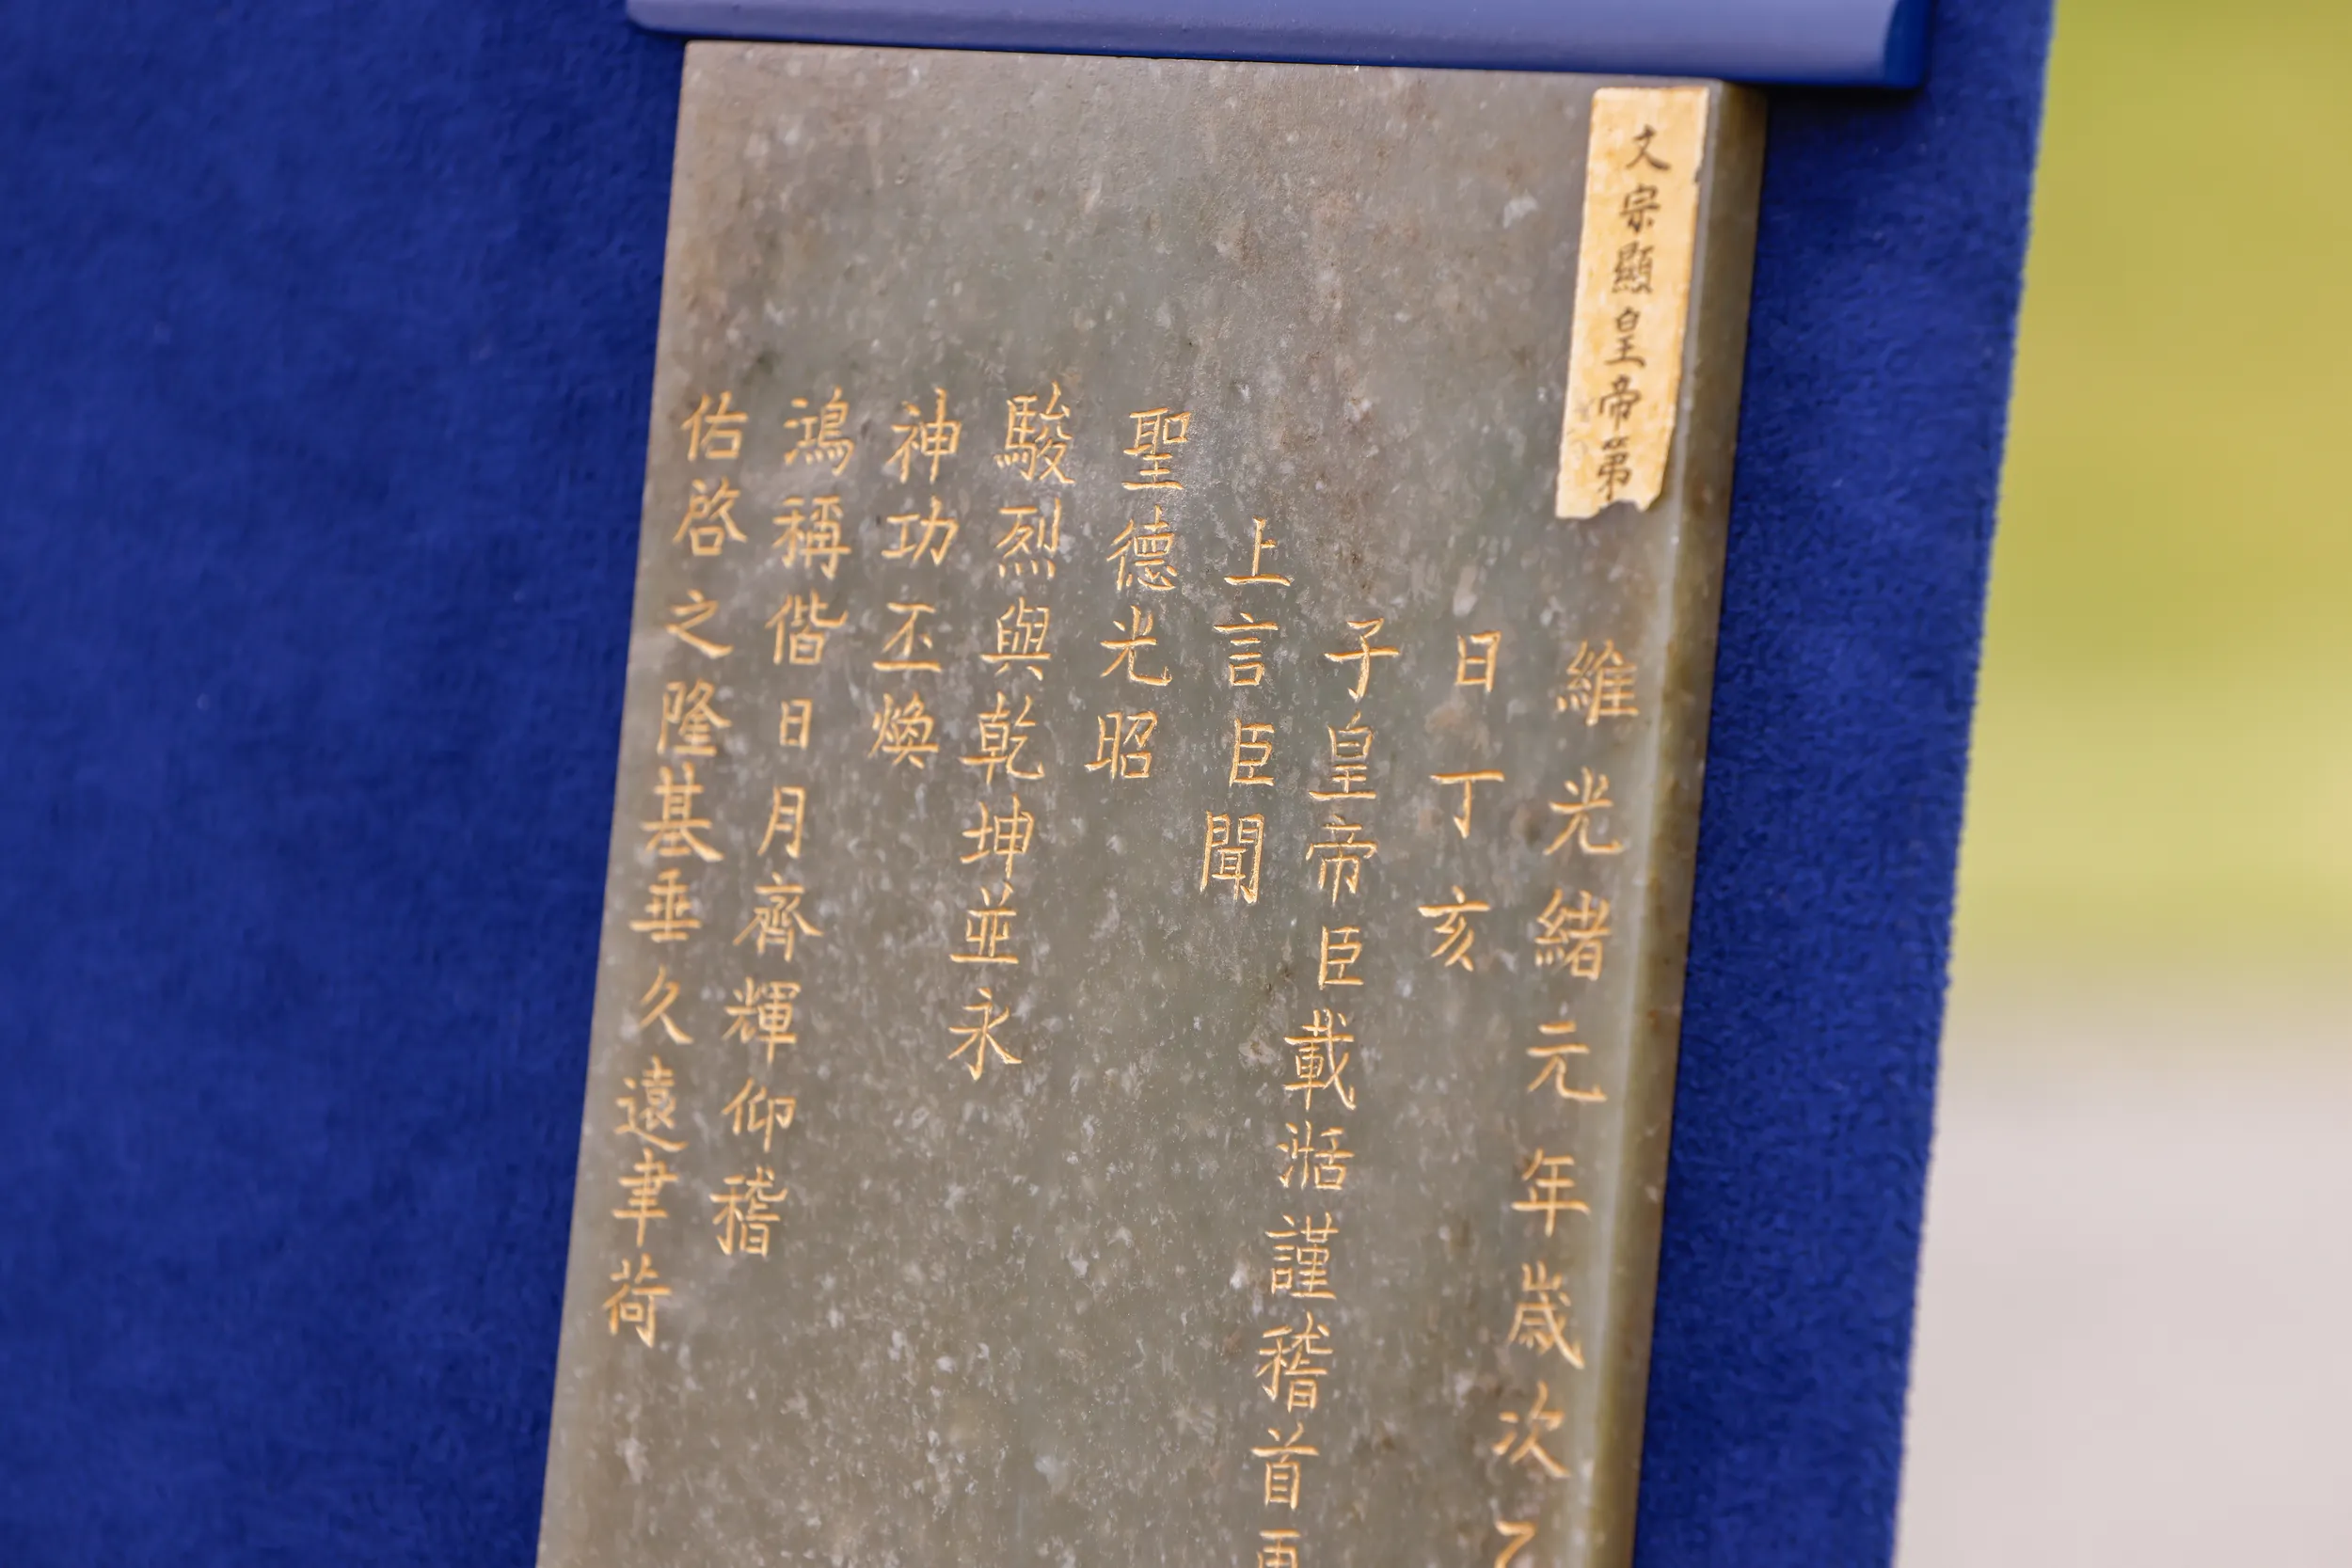 文宗顯皇帝第
維光緒元年歲次乙
日丁亥
子皇帝臣載湉謹稽首再
上言臣聞
聖德光昭
駿烈與乾坤並永
神功丕煥
鴻稱偕日月齊輝仰稽
佑啓之隆基垂久遠聿荷